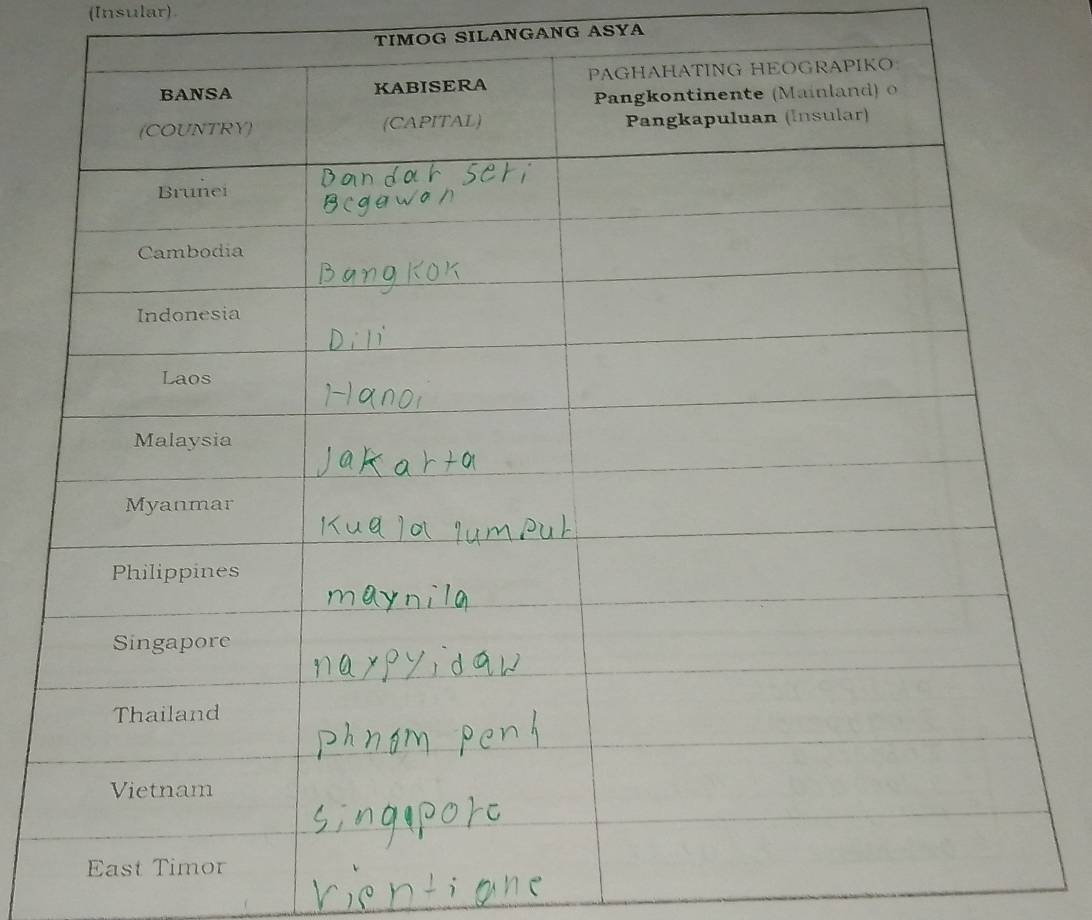 (Insular).
TIMOG SILANGANG ASYA
BANSA
(COUNTRY)
KABISERA
(CAPITAL)
PAGHAHATING HEOGRAPIKO:
Pangkontinente (Mainland) o
Pangkapuluan (Insular)
Brunei
Bandar seri
Begawan
Cambodia
Bangkok
Indonesia
Dili
Laos
Hanoi
Malaysia
Jakarta
Myanmar
Kuala lumpur
Philippines
maynila
Singapore
naypyidaw
Thailand
phnom penh
Vietnam
singapore
East Timor
vientiane